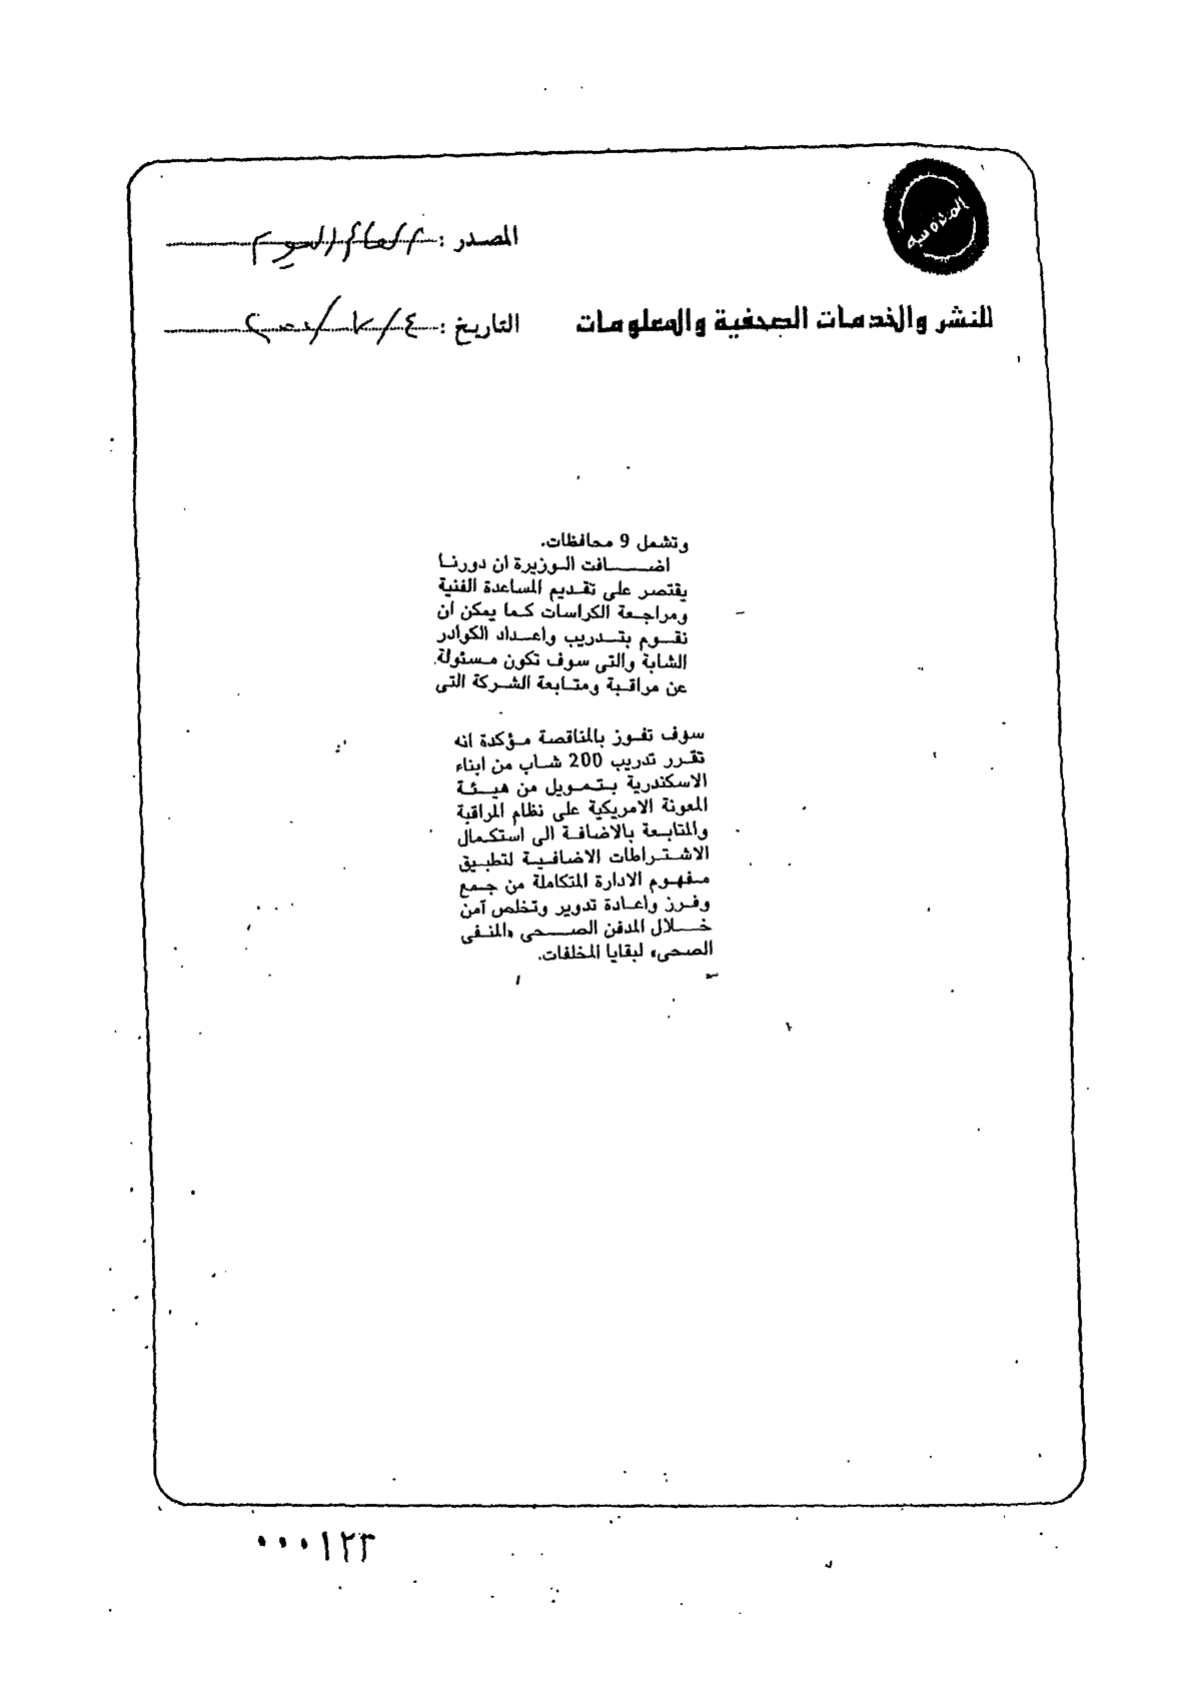 المصدر : العالم اليوم
للنشر والخدمات الصحفية والمعلومات
التاريخ : ٤/٧/٢٠٠٠
وتشمل 9 محافظات.
اضافت الوزيرة ان دورنا
يقتصر على تقديم المساعدة الفنية
ومراجعة الكراسات كما يمكن ان
نقوم بتدريب واعداد الكوادر
الشابة والتى سوف تكون مسئولة
عن مراقبة ومتابعة الشركة التى
سوف تفوز بالمناقصة مؤكدة انه
تقرر تدريب 200 شاب من ابناء
الاسكندرية بتمويل من هيئة
المعونة الامريكية على نظام المراقبة
والمتابعة بالاضافة الى استكمال
الاشتراطات الاضافية لتطبيق
مفهوم الادارة المتكاملة من جمع
وفرز واعادة تدوير وتخلص آمن
خلال المدفن الصحى «المنفى
الصحى» لبقايا المخلفات.
٠٠٠١٢٣